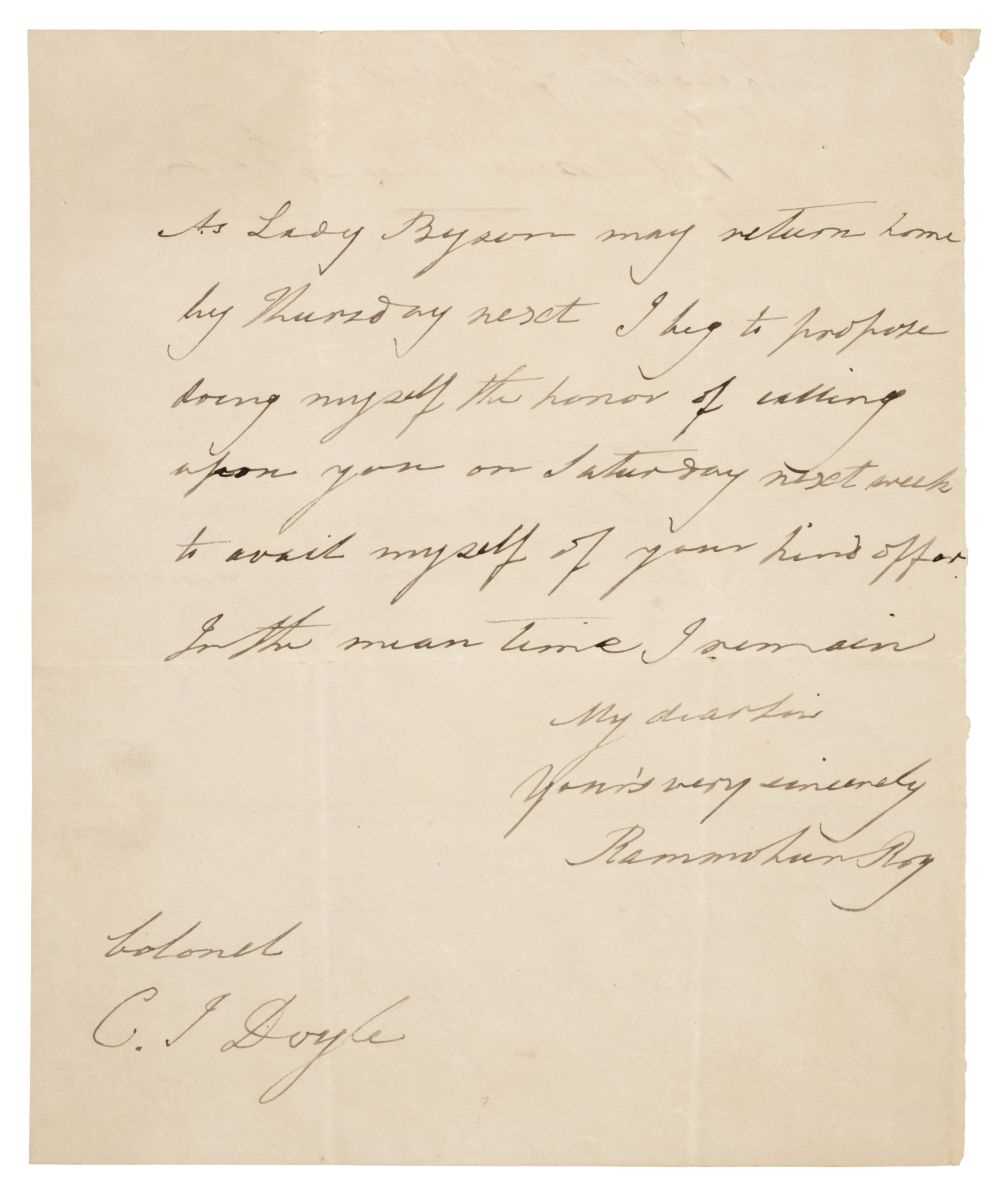 As Lady Byron may return home
by Thursday next I beg to propose
doing myself the honor of calling
upon you on Saturday next week
to avail myself of your kind offer.
In the mean time I remain
My dear Sir
Your's very sincerely
Rammohun Roy
Colonel
C. J Doyle